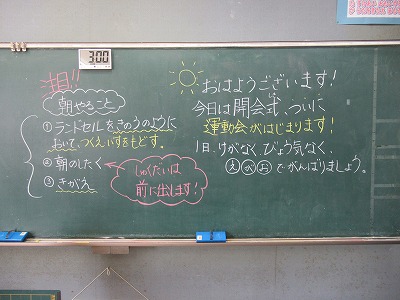 3:00
朝やること
①ランドセルを、きのうのように
おいて、つくえ、いすをもどす。
②朝のしたく
③きがえ
しゅくだいは
前に出します!
おはようございます!
今日は開会式、ついに
運動会がはじまります!
1日、けがなく、びょう気なく、
えがおでがんばりましょう。